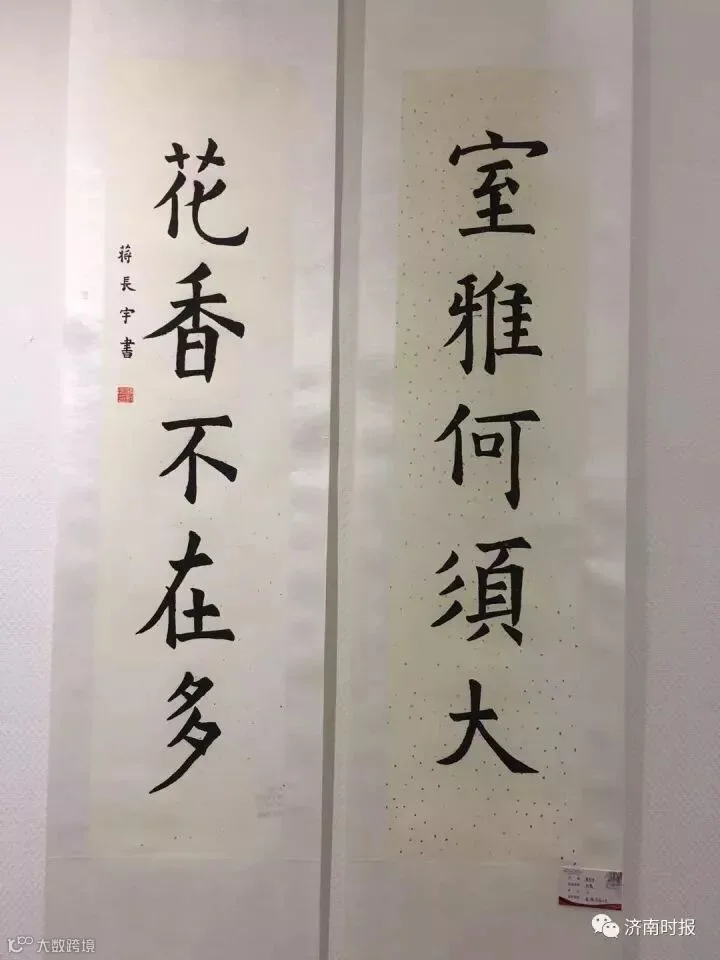 室雅何須大
花香不在多
蒋長宇書
济南时报
大数跨境